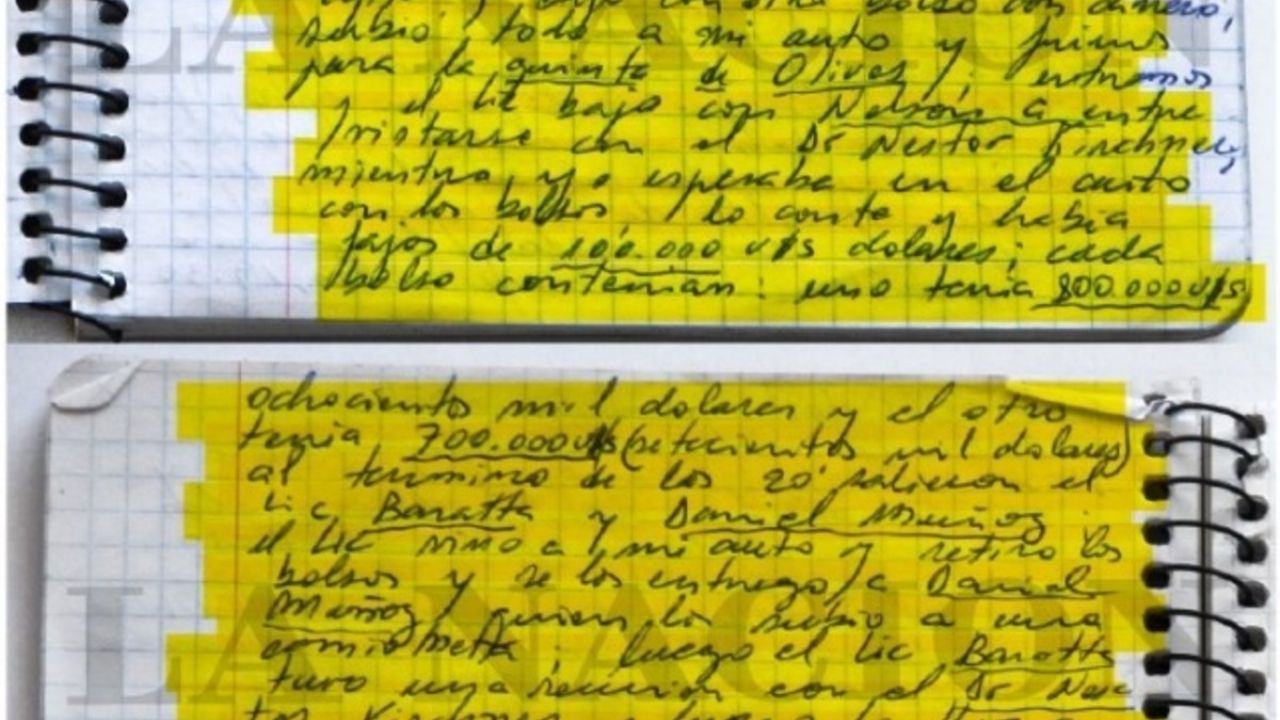 bajo con otro bolso con dinero,
subio todo a mi auto y fuimos
para la quinta de Olivos, entramos
y el Lic bajo con Nelson a entre
vistarse con el Dr Nestor Kirchner,
mientras yo esperaba en el auto
con los bolsos, lo conte y habia
fajos de 100.000 U$S dolares; cada
bolso contenian: uno tenia 800.000 U$S
ochocientos mil dolares y el otro
tenia 700.000 U$S (setecientos mil dolares)
al termino de los 20' salieron el
Lic Baratta y Daniel Muñoz.
el Lic vino a mi auto y retiro los
bolsos y se los entrego a Daniel
Muñoz, quien los subio a una
camioneta; luego el Lic Baratta
tuvo una reunion con el Dr Nes
tor Kirchner y luego
LA NACION
LA NACION